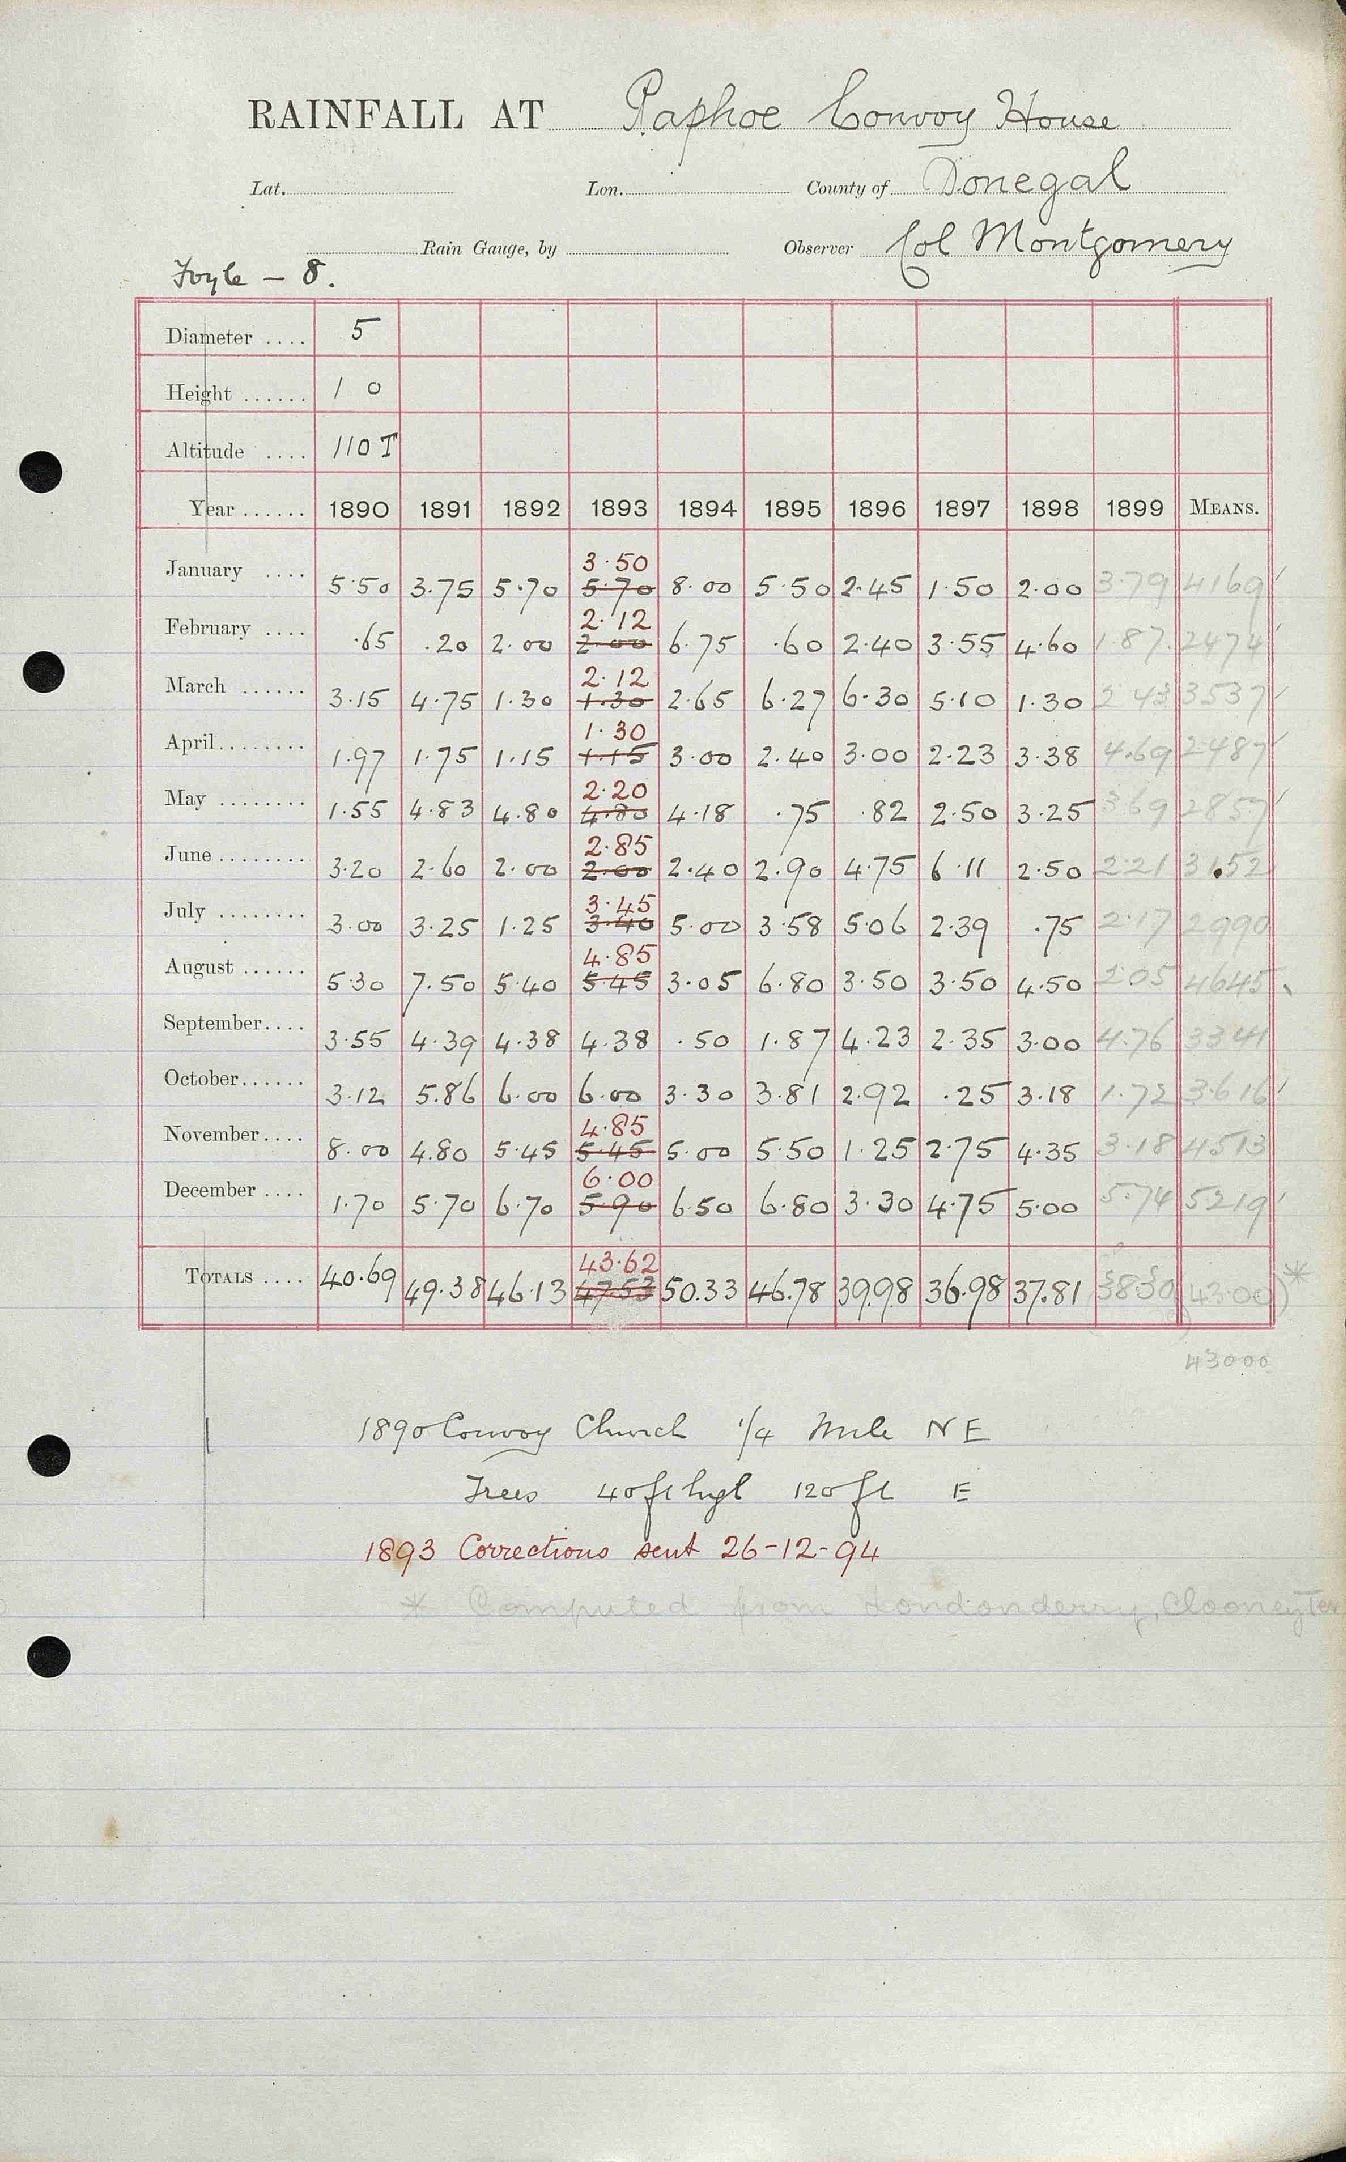 RAINFALL AT Raphoe Convoy House
Lat. Lon. County of Donegal
Rain Gauge, by Observer Col Montgomery
Foyle - 8.
Diameter .... 5
Height ...... 1 0
Altitude .... 110 T
Year ...... 1890 1891 1892 1893 1894 1895 1896 1897 1898 1899 MEANS.
3.50
January .... 5.50 3.75 5.70 5.70 8.00 5.50 2.45 1.50 2.00 3.79 4169
2.12
February .... .65 .20 2.00 2.00 6.75 .60 2.40 3.55 4.60 1.87 2474
2.12
March ...... 3.15 4.75 1.30 1.30 2.65 6.27 6.30 5.10 1.30 2.43 3537
1.30
April........ 1.97 1.75 1.15 1.15 3.00 2.40 3.00 2.23 3.38 4.69 2487
2.20
May ........ 1.55 4.83 4.80 4.80 4.18 .75 .82 2.50 3.25 3.69 2857
2.85
June ........ 3.20 2.60 2.00 2.00 2.40 2.90 4.75 6.11 2.50 2.21 31.52
3.45
July ........ 3.00 3.25 1.25 3.40 5.00 3.58 5.06 2.39 .75 2.17 2990
4.85
August ...... 5.30 7.50 5.40 5.45 3.05 6.80 3.50 3.50 4.50 2.05 4645
September.... 3.55 4.39 4.38 4.38 .50 1.87 4.23 2.35 3.00 4.76 3341
October...... 3.12 5.86 6.00 6.00 3.30 3.81 2.92 .25 3.18 1.72 3.616
4.85
November.... 8.00 4.80 5.45 5.45 5.00 5.50 1.25 2.75 4.35 3.18 4513
6.00
December .... 1.70 5.70 6.70 5.90 6.50 6.80 3.30 4.75 5.00 5.74 5219
43.62
TOTALS .... 40.69 49.38 46.13 47.53 50.33 46.78 39.98 36.98 37.81 3830 (43.00) *
43000
1890 Convoy Church 1/4 Mile NE
Trees 40 ft high 120 ft E
1893 Corrections sent 26-12-94
* Computed from Londonderry, Clooney Ter